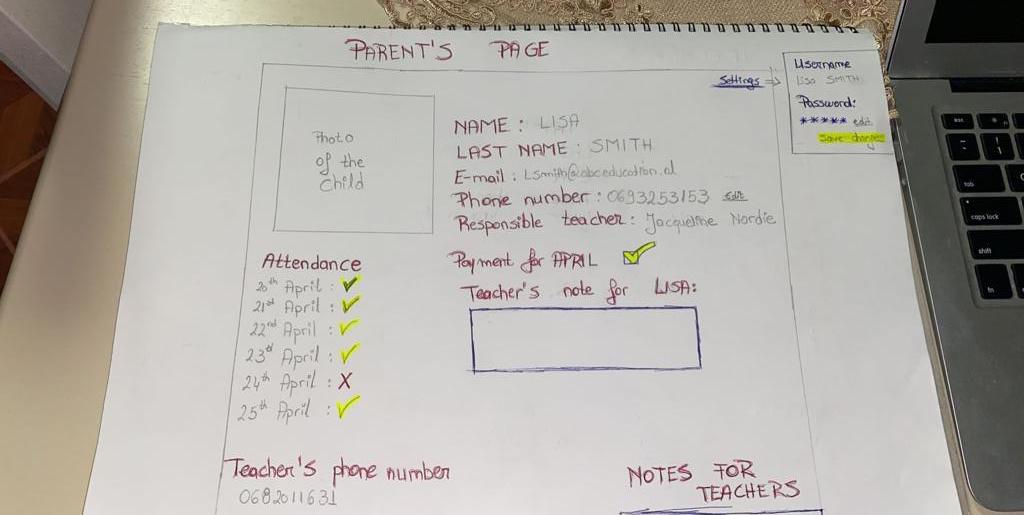 PARENT'S PAGE
Settings
Username
Lisa SMITH
Password:
***** edit
Save changes
Photo
of the
Child
NAME : LISA
LAST NAME : SMITH
E-mail : Lsmith@abceducation.al
Phone number : 0693253153 edit
Responsible teacher : Jacqueline Nordie
Attendance
20th April : ✓
21st April : ✓
22nd April : ✓
23rd April : ✓
24th April : X
25th April : ✓
Payment for APRIL ✓
Teacher's note for LISA:
Teacher's phone number
0682011631
NOTES FOR
TEACHERS
esc
tab
caps lock
shift
fn